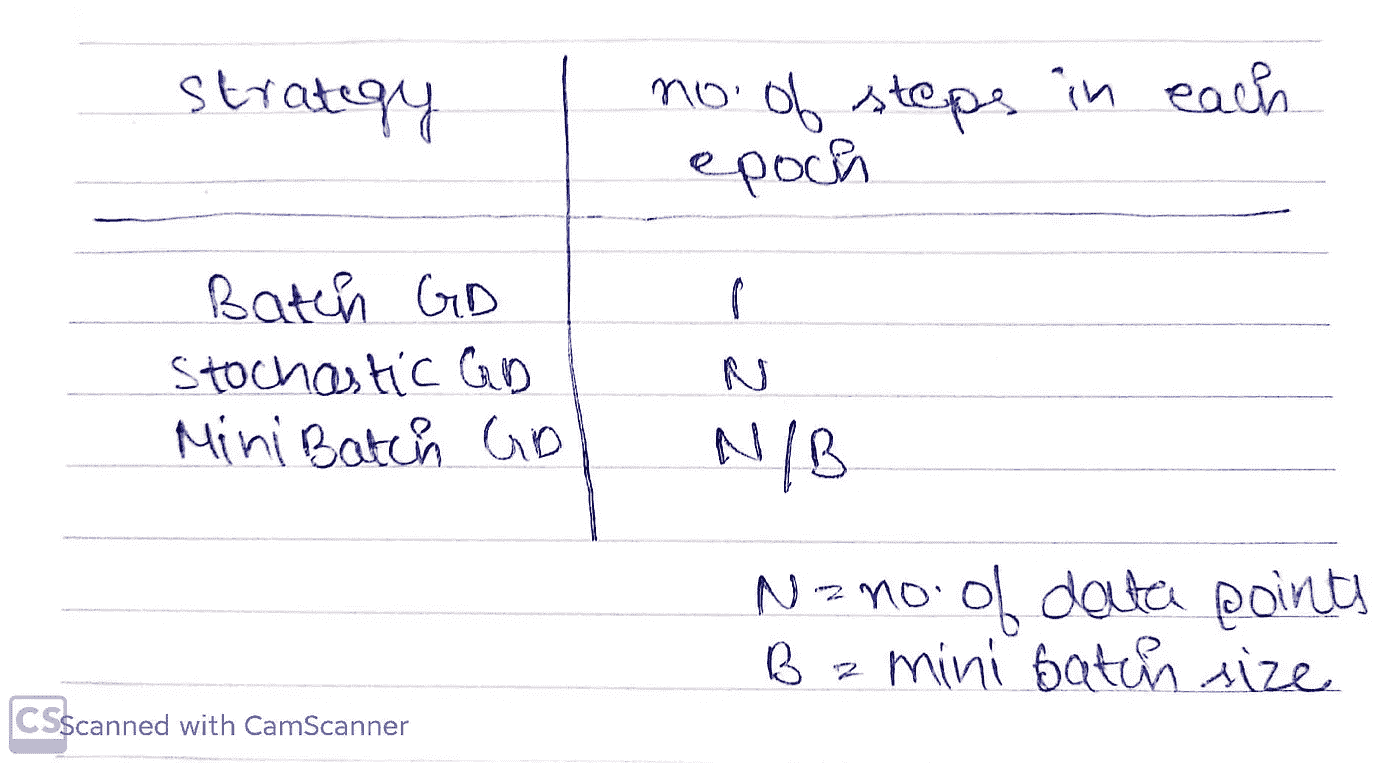 Strategy no. of steps in each
epoch
Batch GD 1
Stochastic GD N
Mini Batch GD N/B
N = no. of data points
B = mini batch size
CS Scanned with CamScanner